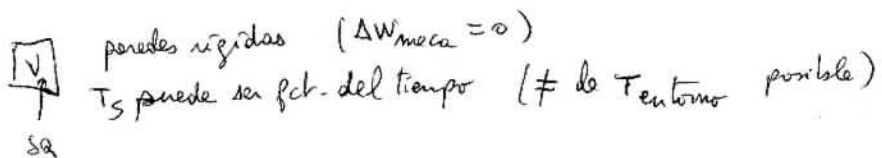 V paredes rígidas (ΔW meca = 0)
Ts puede ser fct. del tiempo (≠ de Tentorno posible)
δQ